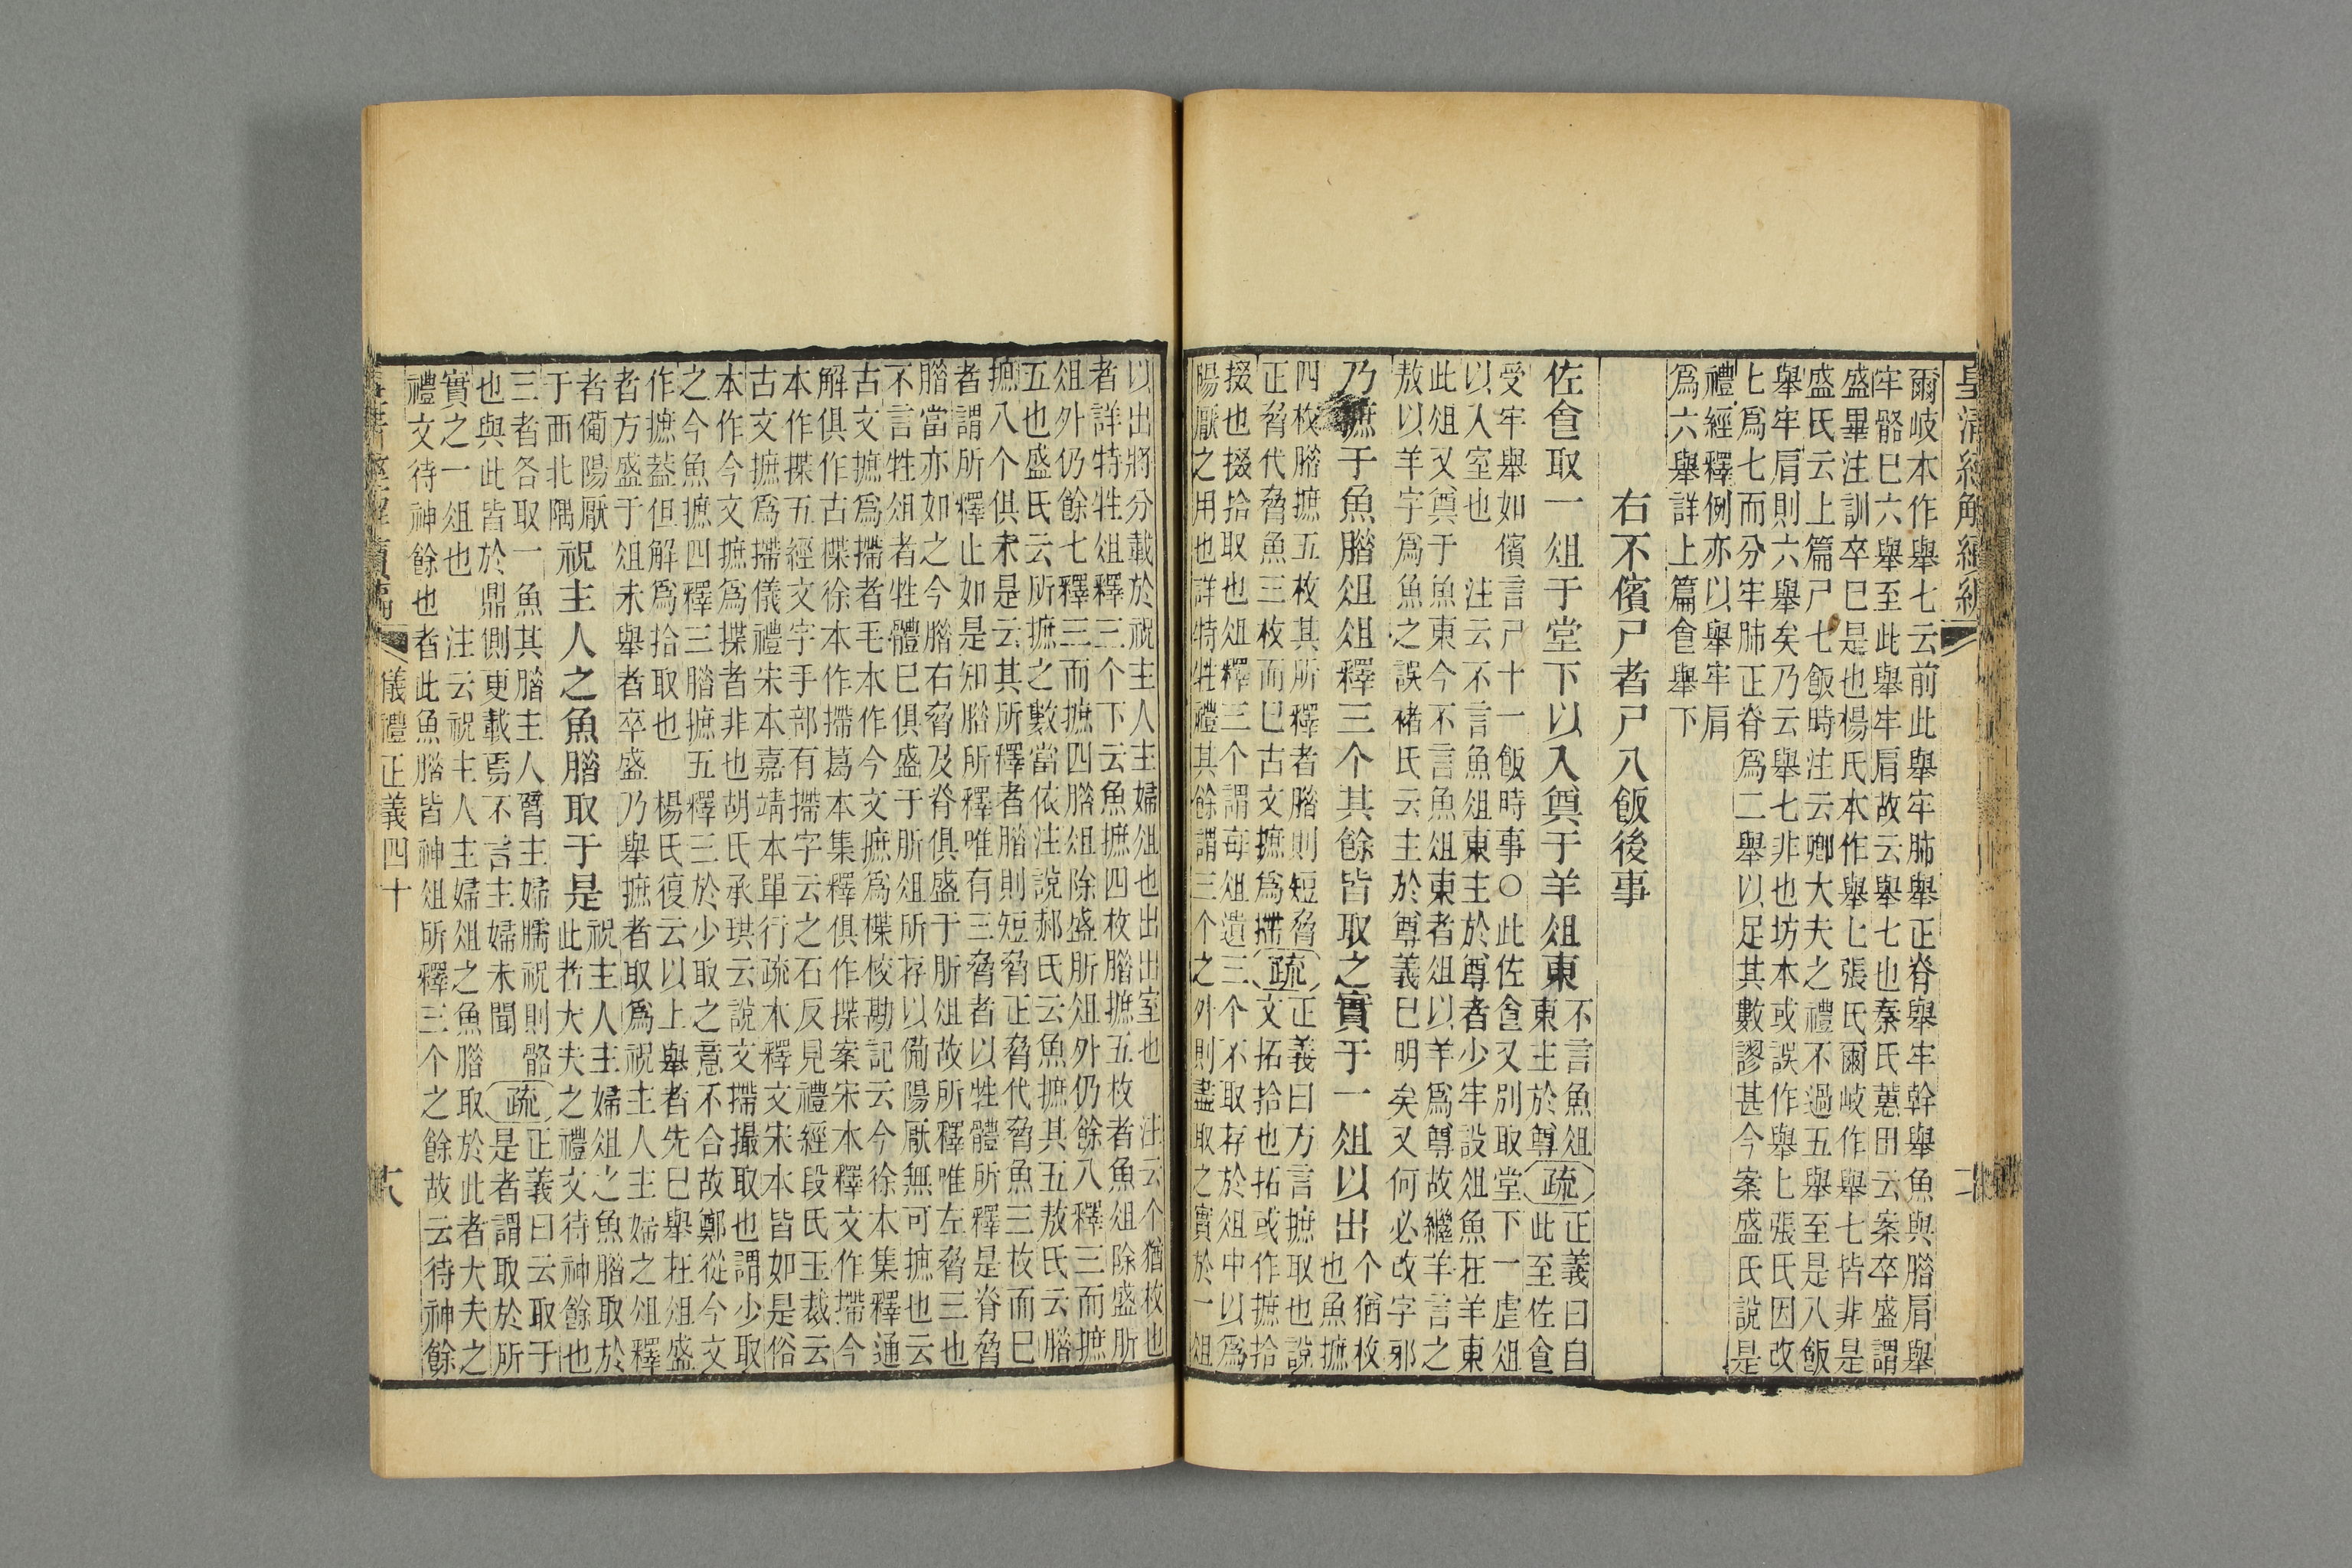 皇清經解續編
爾岐本作舉七云前此舉牢肺舉正脊舉牢幹舉魚與腊肩舉
牢骼巳六舉至此舉牢肩故云舉七也秦氏蕙田云案卒盛謂
盛畢注訓卒巳是也楊氏本作舉七張氏爾岐作舉七皆非是
盛氏云上篇尸七飯時注云卿大夫之禮不過五舉至是八飯
舉牢肩則六舉矣乃云舉七非也坊本或誤作舉七張氏因改
七爲七而分牢肺正脊爲二舉以足其數謬甚今案盛氏說是
禮經釋例亦以舉牢肩
爲六舉詳上篇食舉下
右不儐尸者尸八飯後事
佐食取一俎于堂下以入奠于羊俎東
不言魚俎
東主於尊
疏
正義曰自
此至佐食
受牢舉如儐言尸十一飯時事○此佐食又別取堂下一虛俎
以入室也 注云不言魚俎東主於尊者少牢設俎魚在羊東
此俎又奠于魚東今不言魚俎東者俎以羊爲尊故繼羊言之
敖以羊字爲魚之誤褚氏云主於尊義巳明矣又何必改字邪
乃摭于魚腊俎俎釋三个其餘皆取之實于一俎以出
个猶枚
也魚摭
四枚腊摭五枚其所釋者腊則短脅
正脅代脅魚三枚而巳古文摭爲摕
疏
正義曰方言摭取也說
文拓拾也拓或作摭拾
掇也掇拾取也俎釋三个謂每俎遺三个不取存於俎中以爲
陽厭之用也詳特牲禮其餘謂三个之外則盡取之實於一俎
以出將分載於祝主人主婦俎也出出室也 注云个猶枚也
者詳特牲俎釋三个下云魚摭四枚腊摭五枚者魚俎除盛肵
俎外仍餘七釋三而摭四腊俎除盛肵俎外仍餘八釋三而摭
五也盛氏云所摭之數當依注說郝氏云魚摭其五敖氏云腊
摭八个俱未是云其所釋者腊則短脅正脅代脅魚三枚而巳
者謂所釋止如是知腊所釋唯有三脅者以牲體所釋是脊脅
腊當亦如之今腊右脅及脊俱盛于肵俎故所釋唯左脅三也
不言牲俎者牲體巳俱盛于肵俎所存以備陽厭無可摭也云
古文摭爲摕者毛本作今文摭爲楪校勘記云今徐本集釋通
解俱作古楪徐本作摕葛本集釋俱作揲案宋本釋文作摕今
本作揲五經文字手部有摕字云之石反見禮經段氏玉裁云
古文摭爲摕儀禮宋本嘉靖本單行疏本釋文宋本皆如是俗
本作今文摭爲揲者非也胡氏承珙云說文摕撮取也謂少取
之今魚摭四釋三腊摭五釋三於少取之意不合故鄭從今文
作摭葢但解爲拾取也 楊氏復云以上舉者先巳舉在俎盛
者方盛于俎未舉者卒盛乃舉摭者取爲祝主人主婦之俎釋
者備陽厭
于西北隅
祝主人之魚腊取于是
祝主人主婦俎之魚腊取於
此者大夫之禮文待神餘也
三者各取一魚其腊主人臂主婦臑祝則骼
也與此皆於鼎側更載焉不言主婦未聞
疏
正義曰云取于
是者謂取於所
實之一俎也 注云祝主人主婦俎之魚腊取於此者大夫之
禮文待神餘也者此魚腊皆神俎所釋三个之餘故云待神餘
皇清經解續編
儀禮正義四十